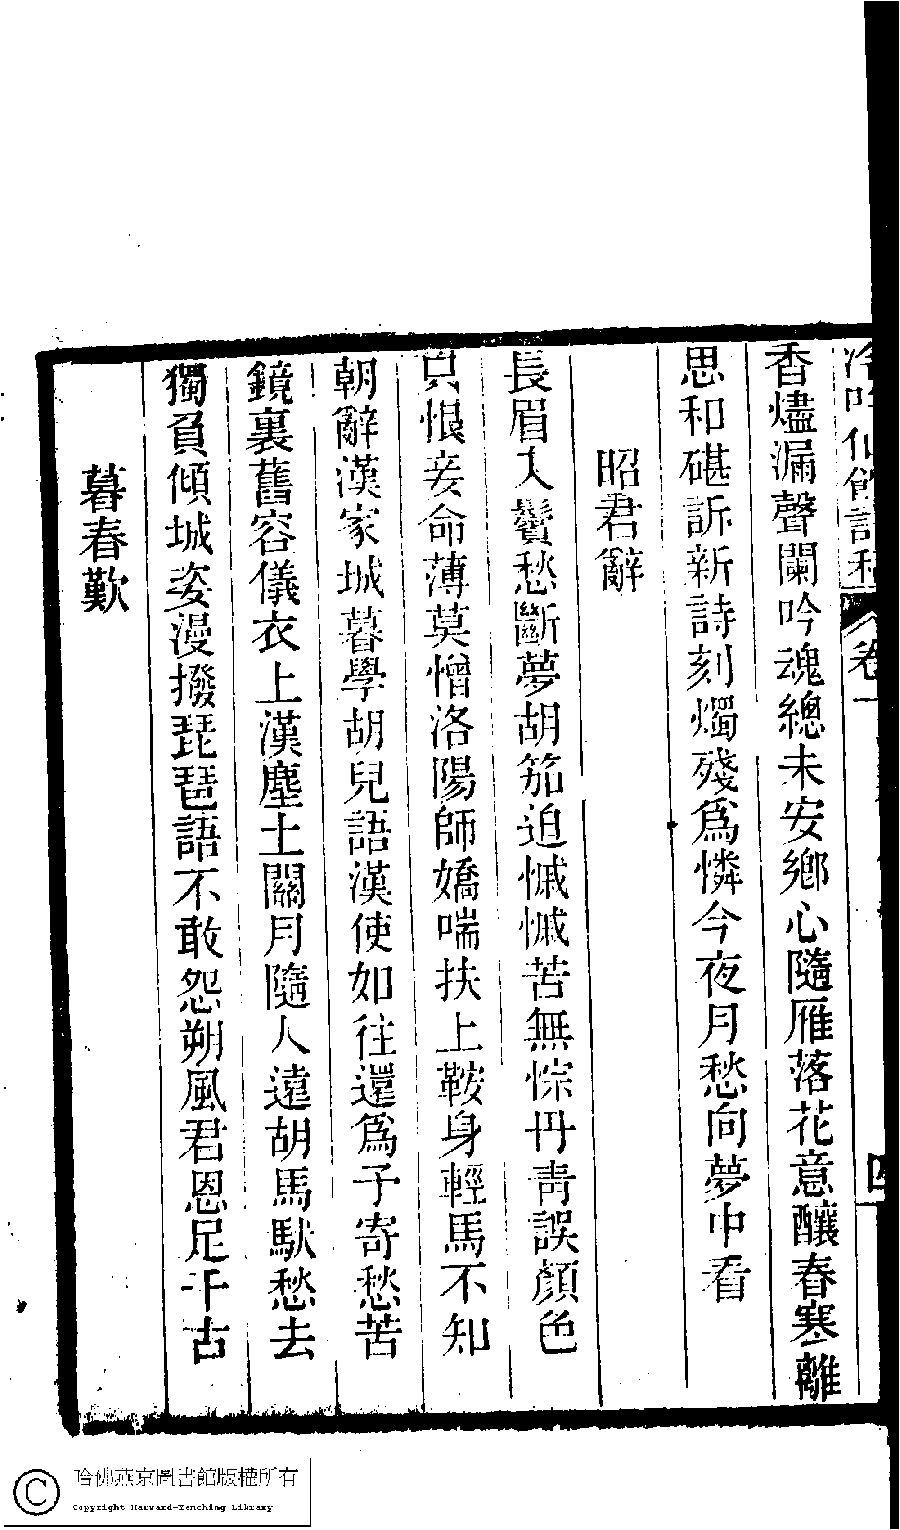 冷吟仙館詩稿 卷一 四
香燼漏聲闌吟魂總未安鄉心隨雁落花意釀春寒離
思和碪訴新詩刻燭殘爲憐今夜月愁向夢中看
昭君辭
長眉入鬢愁斷夢胡笳迫慽慽苦無悰丹青誤顏色
只恨妾命薄莫憎洛陽師嬌喘扶上鞍身輕馬不知
朝辭漢家城暮學胡兒語漢使如往還爲予寄愁苦
鏡裏舊容儀衣上漢塵土關月隨人遠胡馬馱愁去
獨負傾城姿漫撥琵琶語不敢怨朔風君恩足千古
暮春歎
哈佛燕京圖書館版權所有
Copyright Harvard-Yenching Library